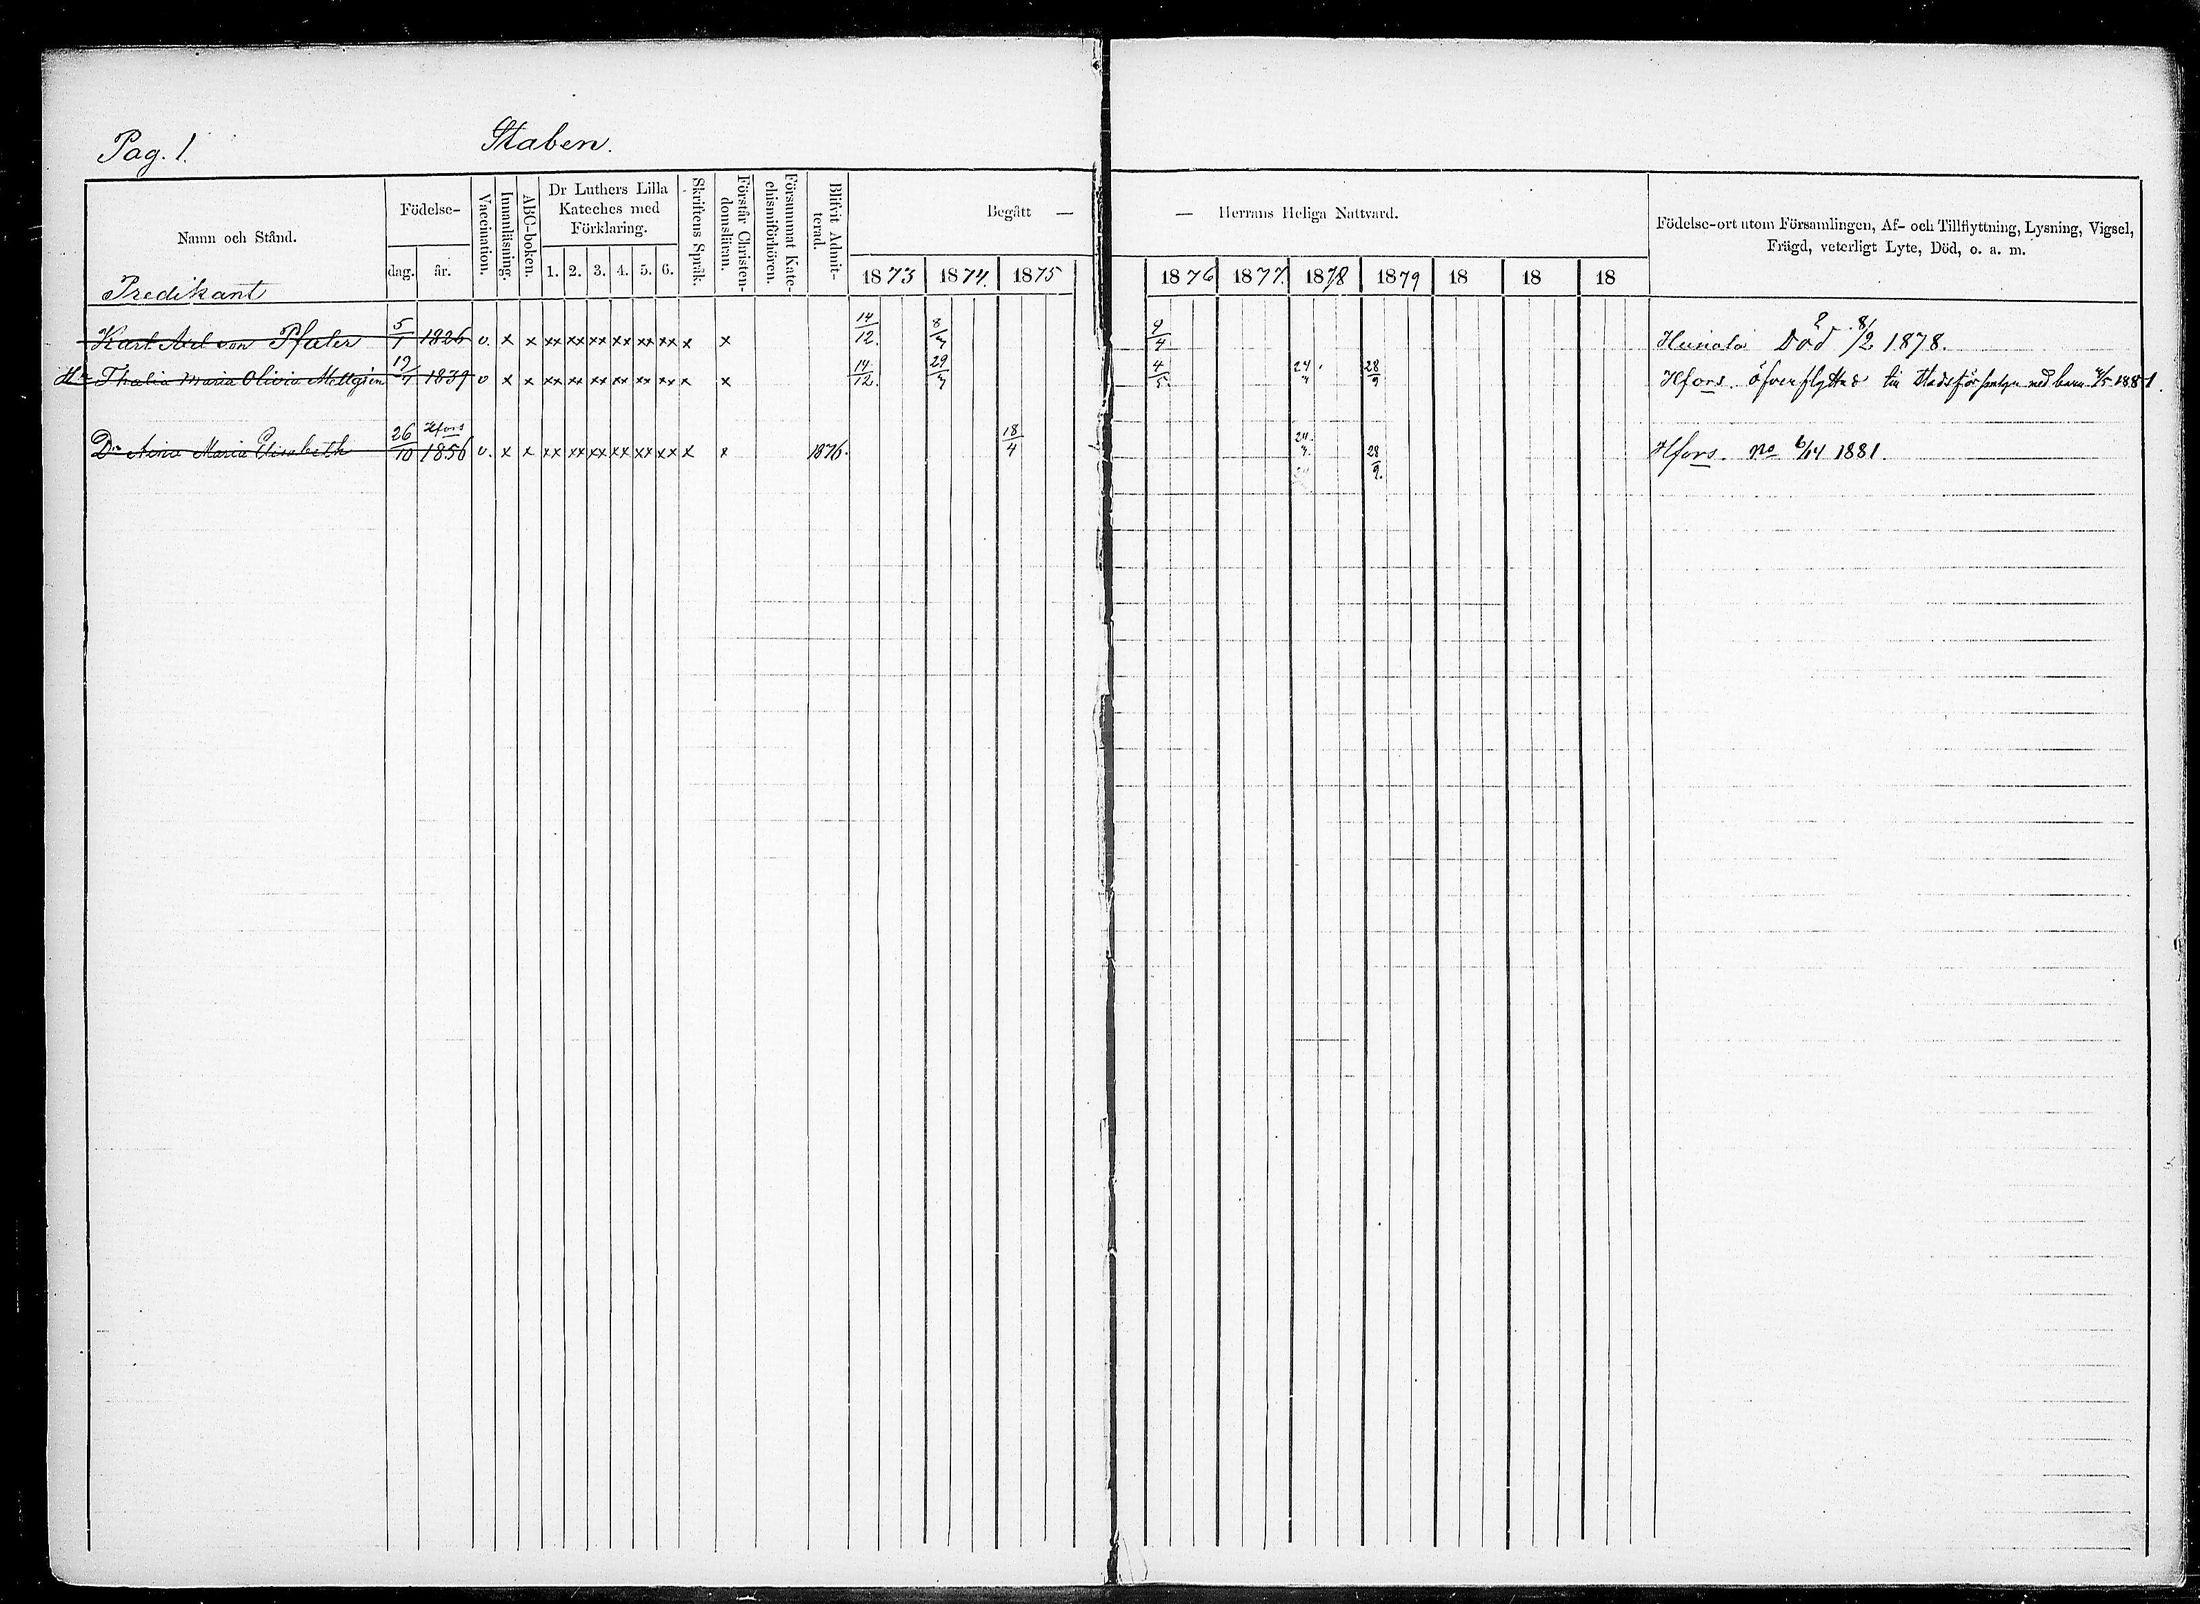 Pag. 1. Staben.
Namn och Stånd. Födelse- dag. år. Vaccination. Innanläsning. ABC-boken. Dr Luthers Lilla Kateches med Förklaring. 1. 2. 3. 4. 5. 6. Skriftens Språk. Förstår Christendomsläran. Försummat Katechismiförhören. Blifvit Admitterad. Begått — — Herrans Heliga Nattvard. Födelse-ort utom Församlingen, Af- och Tillflyttning, Lysning, Vigsel, Frägd, veterligt Lyte, Död, o. a. m.
1873 1874. 1875 1876 1877. 1878 1879 18 18 18
Predikant
Karl Axel von Pfaler 5/1 1826 v. x x xx xx xx xx xx xx x x 14/12. 8/3 9/4 Död 8/2 1878.
Hu Thalia Maria Olivia 19/7 1839 v x x xx xx xx xx xx xx x x 14/12. 29/3 4/5 24 28/9 Hfors. öfverflyttad 4/5 1881.
Hfors
Dr Aina Maria Elisabeth 26/10 1856 v. x x xx xx xx xx xx xx x x 1876. 18/4 24 28/9. Hfors. 1881.